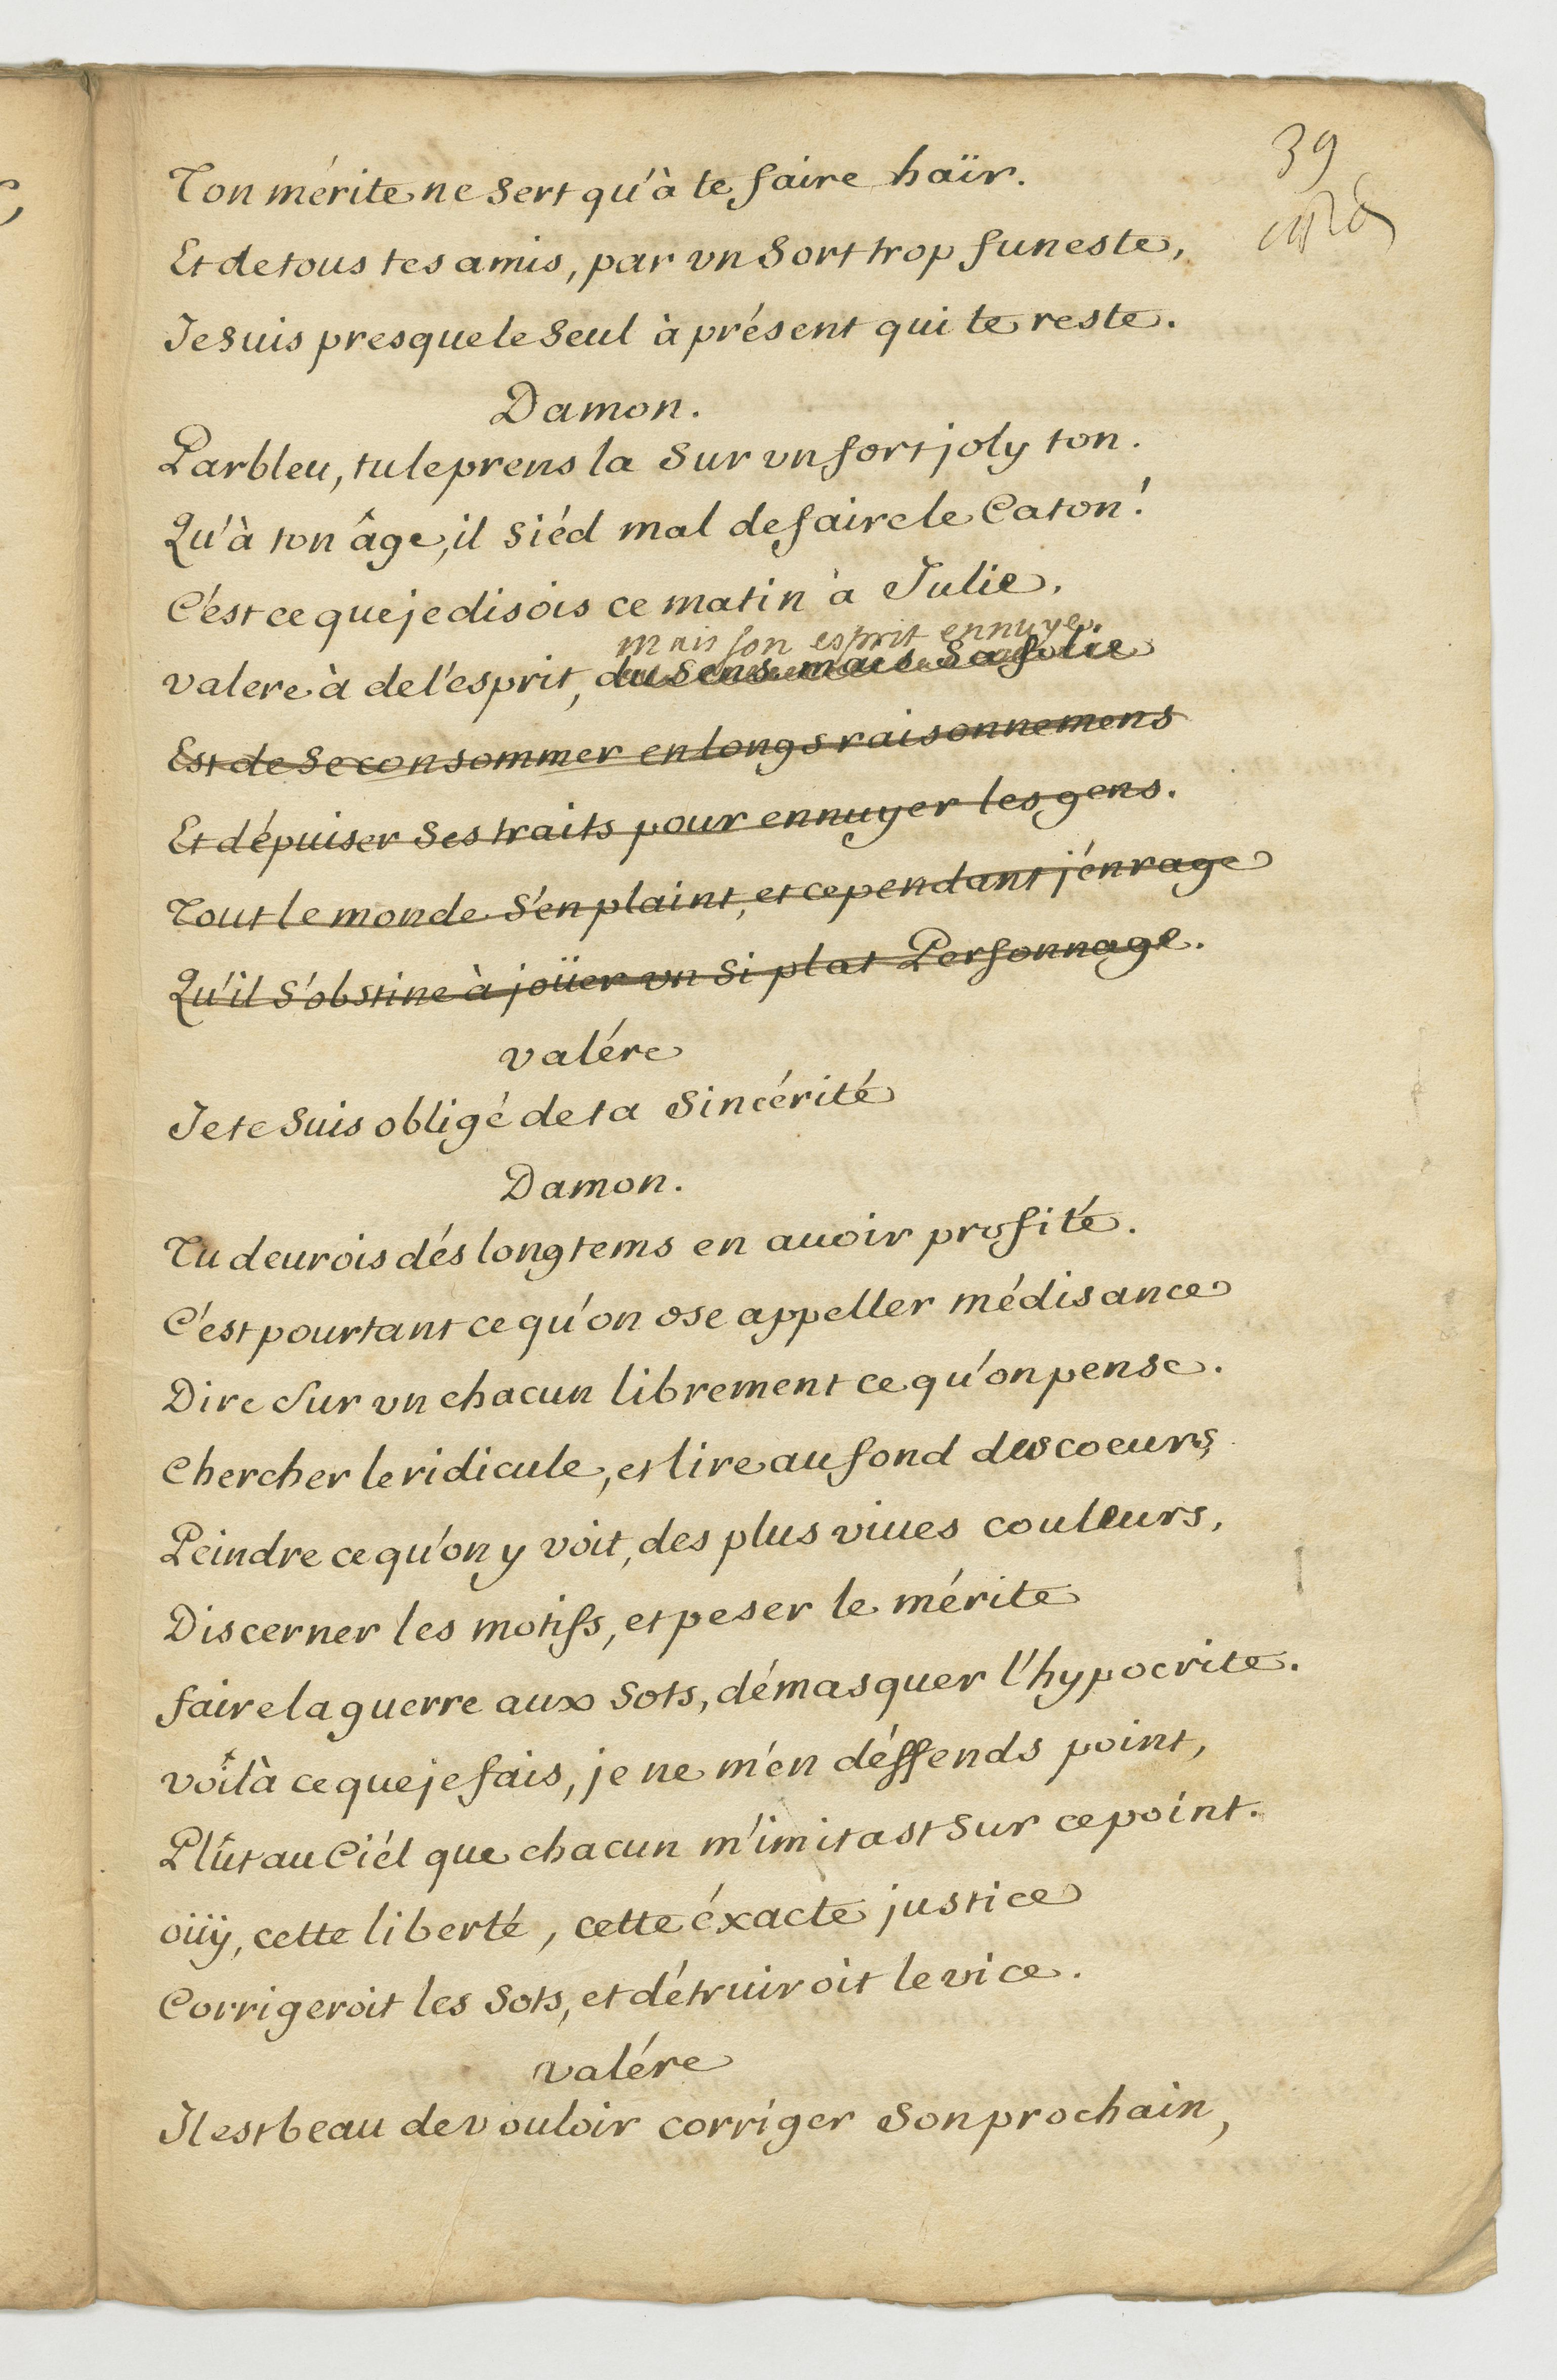 39
Ton mérite ne sert qu'à te faire haïr.
Et de tous tes amis, par vn sort trop funeste,
Je suis presque le seul à présent qui te reste.
Damon.
Parbleu, tu le prens la sur vn fort joly ton.
Qu'à ton âge, il siéd mal de faire le Caton!
C'est ce que je disois ce matin à Julie.
mais son esprit ennuye.
valere à de l'esprit, du sens mais sa folie
Est de se consommer en longs raisonnemens
Et d'épuiser ses traits pour ennuyer les gens.
Tout le monde s'en plaint, et cependant j'enrage
Qu'il s'obstine à joüer vn si plat Personnage.
valére
Je te suis obligé de ta sincérité
Damon.
Tu deurois dés longtems en auoir profité.
C'est pourtant ce qu'on ose appeller médisance
Dire sur vn chacun librement ce qu'on pense.
Chercher le ridicule, et lire au fond des coeurs,
Peindre ce qu'on y voit, des plus viues couleurs,
Discerner les motifs, et peser le mérite
faire la guerre aux sots, démasquer l'hypocrite.
voîlà ce que je fais, je ne m'en déffends point,
Plût au Ciél que chacun m'imitast sur ce point.
oüÿ, cette liberté, cette éxacte justice
Corrigeroit les sots, et détruiroit le vice.
valére
Il est beau de vouloir corriger son prochain,